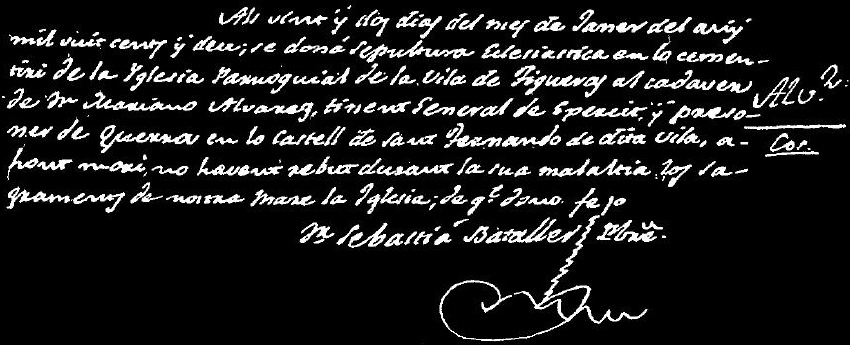 Als vint y dos dias del mes de Janer del any
mil vuit cents y deu; se doná sepultura Eclesiastica en lo cemen-
tiri de la Iglesia Parroquial de la vila de Figueras al cadaver
de Dn. Mariano Alvarez, tinent General de Epercit, y preso-
ner de Guerra en lo Castell de sant Fernando de dita vila, a-
hont morí, no havent rebut durant la sua malaltia los sa-
graments de nostra Mare la Iglesia; de qt. dono fe jo
Dr. Sebastiá Bataller Pbre.
Alvz.
Cos.